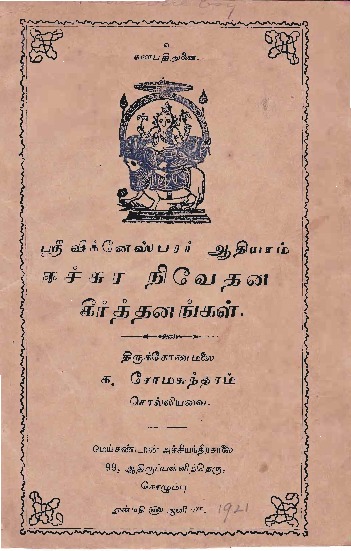 உ
கணபதிதுணை.
ஸ்ரீ விக்னேஸ்பரர் ஆதியாம்
சச்சுர நிவேதன
கீர்த்தனங்கள்.
திருக்கோணமலை
க. சோமசுந்தரம்
சொல்லியவை.
மெய்கண்டான் அச்சியந்திரசாலை
99, ஆதிருப்பள்ளித்தெரு,
கொழும்பு
1921